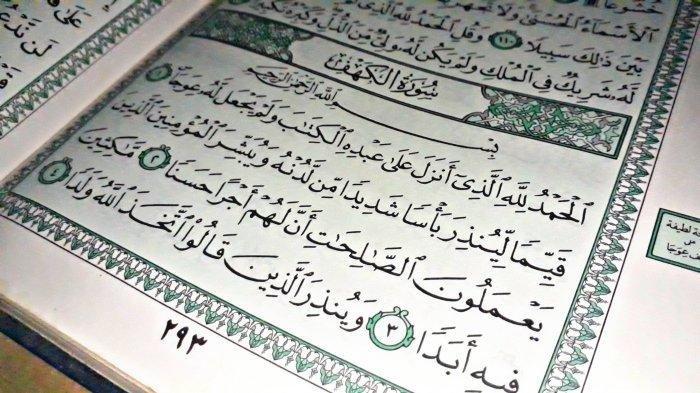 ٱلْأَسْمَآءُ ٱلْحُسْنَىٰ وَلَا تَجْهَرْ
بَيْنَ ذَٰلِكَ سَبِيلًا ١١٠ وَقُلِ ٱلْحَمْدُ لِلَّهِ ٱلَّذِى
لَّهُۥ شَرِيكٌ فِى ٱلْمُلْكِ وَلَمْ يَكُن لَّهُۥ وَلِىٌّ مِّنَ ٱلذُّلِّ وَكَبِّرْهُ تَكْبِيرًا
سُورَةُ ٱلْكَهْفِ
بِسْمِ ٱللَّهِ ٱلرَّحْمَٰنِ ٱلرَّحِيمِ
ٱلْحَمْدُ لِلَّهِ ٱلَّذِىٓ أَنزَلَ عَلَىٰ عَبْدِهِ ٱلْكِتَٰبَ وَلَمْ يَجْعَل لَّهُۥ عِوَجَا ١
قَيِّمًا لِّيُنذِرَ بَأْسًا شَدِيدًا مِّن لَّدُنْهُ وَيُبَشِّرَ ٱلْمُؤْمِنِينَ ٱلَّذِينَ
يَعْمَلُونَ ٱلصَّٰلِحَٰتِ أَنَّ لَهُمْ أَجْرًا حَسَنًا ٢ مَّٰكِثِينَ
فِيهِ أَبَدًا ٣ وَيُنذِرَ ٱلَّذِينَ قَالُوا۟ ٱتَّخَذَ ٱللَّهُ وَلَدًا ٤
٢٩٣